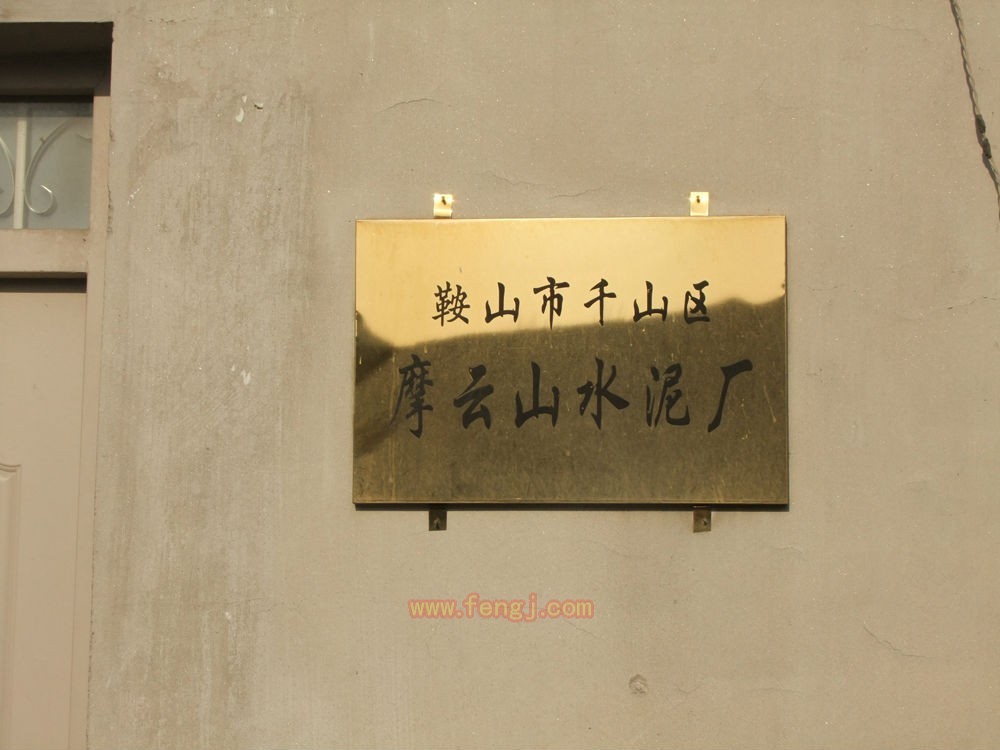 鞍山市千山区
摩云山水泥厂
www.fengj.com